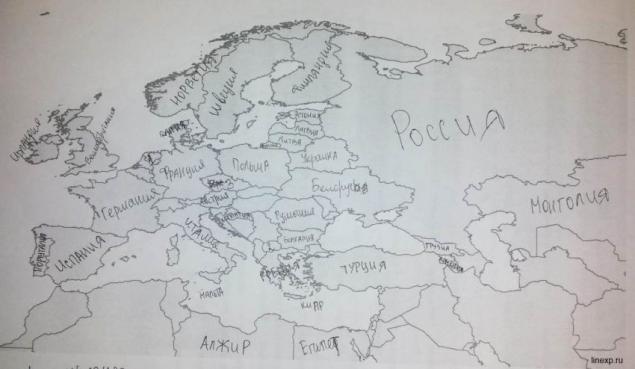 НОРВЕГИЯ
Швеция
Финляндия
Россия
Эстония
Латвия
Литва
Ирландия
Великобритания
Франция
Польша
Украина
Германия
Беларусь
Австрия
Монголия
Румыния
Италия
Болгария
Португалия
Испания
Грузия
Греция
Турция
Мальта
Кипр
Алжир
Египет
linexp.ru